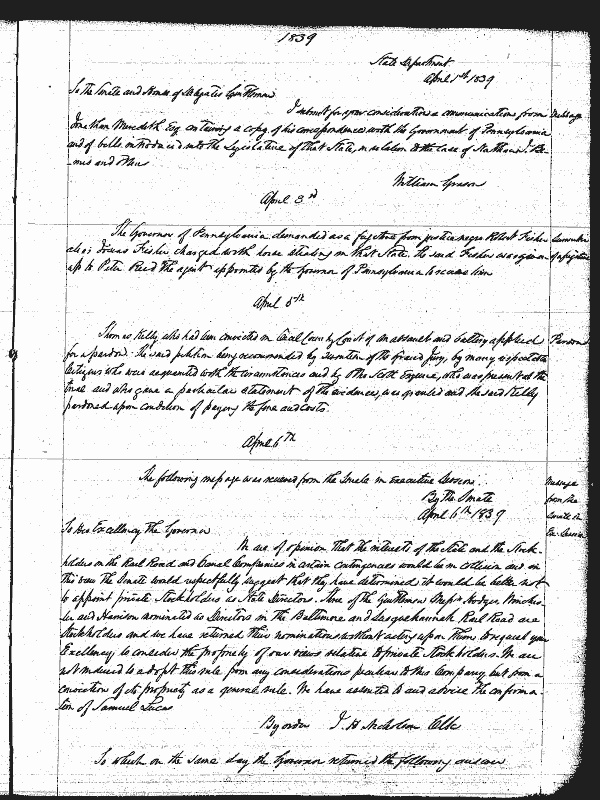 1839
State Department
April 1st 1839
To the Senate and House of Delegates Gentlemen
I submit for your consideration a communication from Message
Jonathan Meredith Esq containing a copy of his correspondence with the Government of Pennsylvania
and of bills introduced into the Legislature of that State, in relation to the case of Nathan S. Be-
-mis and others
William Grason
April 3rd
The Governor of Pennsylvania demanded as a fugitive from justice negro Robert Fisher Surrender
alias Fisher charged with horse stealing in that State. The said Fisher was given of a fugitive
up to Peter Reed the agent appointed by the Governor of Pennsylvania to receive him
April 5th
Thomas Kelly who had been convicted in Cecil County Court of an assault and battery applied Pardon
for a pardon. The said petition being recommended by of the grand jury, by many respectable
citizens who were acquainted with the circumstances and by Otho Scott Esquire, who was present at the
trial and who gave a particular statement of the evidence, was granted and the said Kelly
pardoned upon condition of paying the fine and costs.
April 6th
The following message was received from the Senate in Executive Session. Message
By the Senate from the
April 6th 1839 Senate in
Ex. Session
To His Excellency the Governor
We are of opinion that the interests of the State and the Stock-
holders in the Rail Road and Canal Companies in certain contingencies would be in collision and in
this view the Senate would respectfully suggest that they have determined it would be better not
to appoint private Stockholders as State Directors. Three of the Gentlemen Messrs Hodges, Winches-
ter and Harrison nominated as Directors in the Baltimore and Susquehannah Rail Road are
Stockholders and we have returned their nominations without acting upon them, to request your
Excellency to consider the propriety of our views relative to private Stock holders. We are
not induced to adopt this rule from any considerations peculiar to this Company, but from a
conviction of its propriety as a general rule. We have assented to and advise the confirma-
tion of Samuel Lucas
By order J. H. Nicholson Clk
To which on the same day the Governor returned the following answer